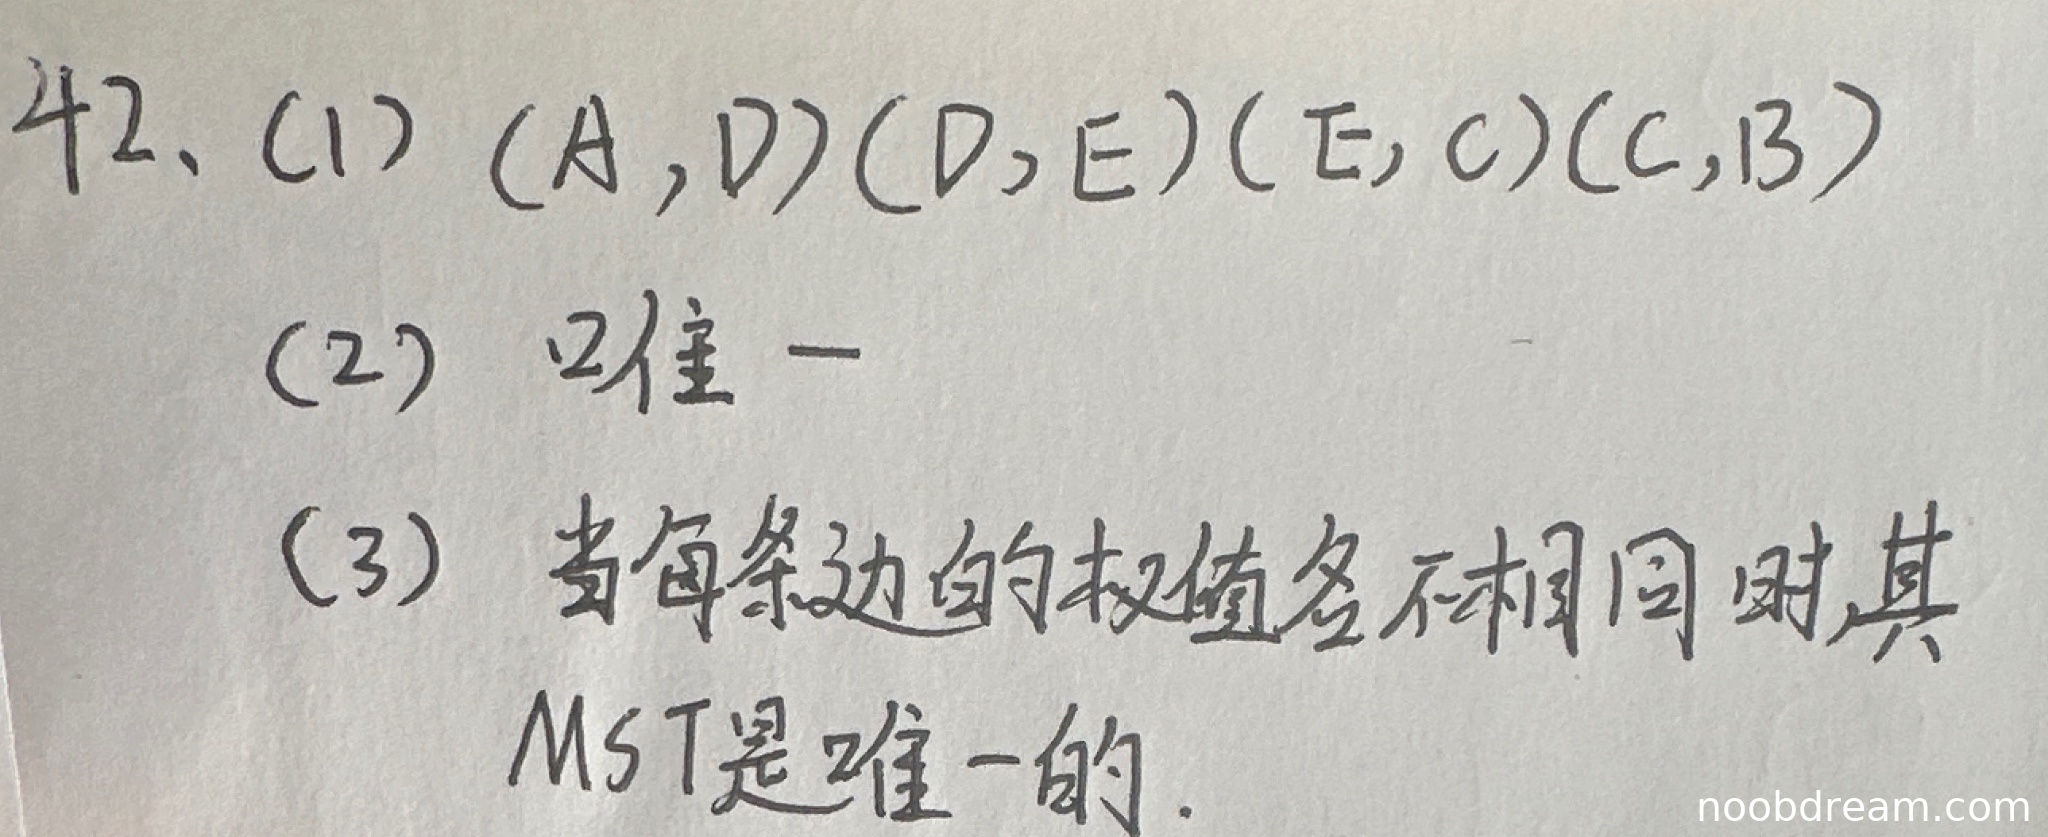 42、(1) (A,D)(D,E)(E,C)(C,B)
(2) 唯一
(3) 当每条边的权值各不相同时,其
MST是唯一的.
noobdream.com